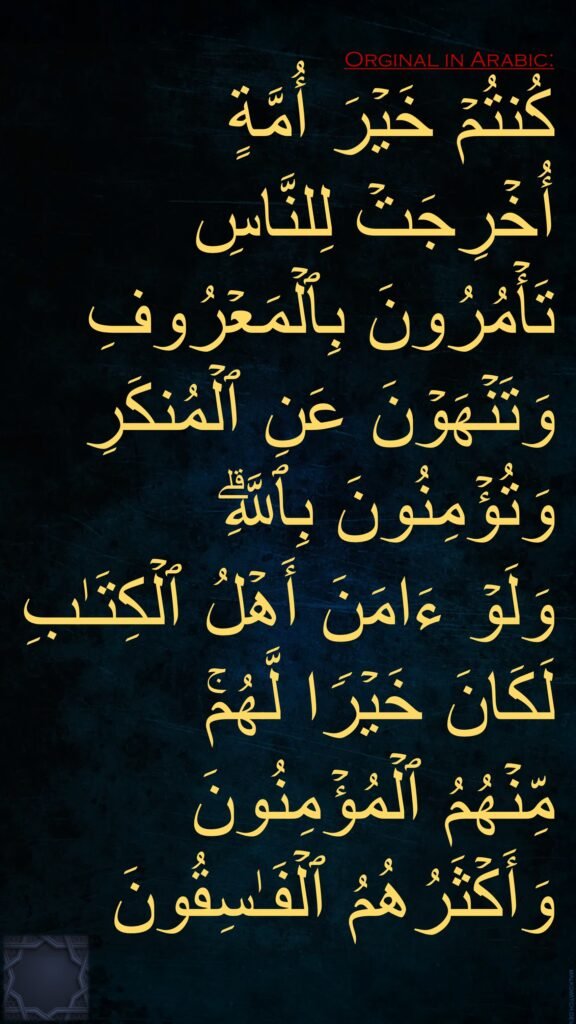 Orginal in Arabic:
كُنتُمۡ خَيۡرَ أُمَّةٍ
أُخۡرِجَتۡ لِلنَّاسِ
تَأۡمُرُونَ بِٱلۡمَعۡرُوفِ
وَتَنۡهَوۡنَ عَنِ ٱلۡمُنكَرِ
وَتُؤۡمِنُونَ بِٱللَّهِۗ
وَلَوۡ ءَامَنَ أَهۡلُ ٱلۡكِتَـٰبِ
لَكَانَ خَيۡرَا لَّهُمۚ
مِّنۡهُمُ ٱلۡمُؤۡمِنُونَ
وَأَكۡثَرُهُمُ ٱلۡفَـٰسِقُونَ